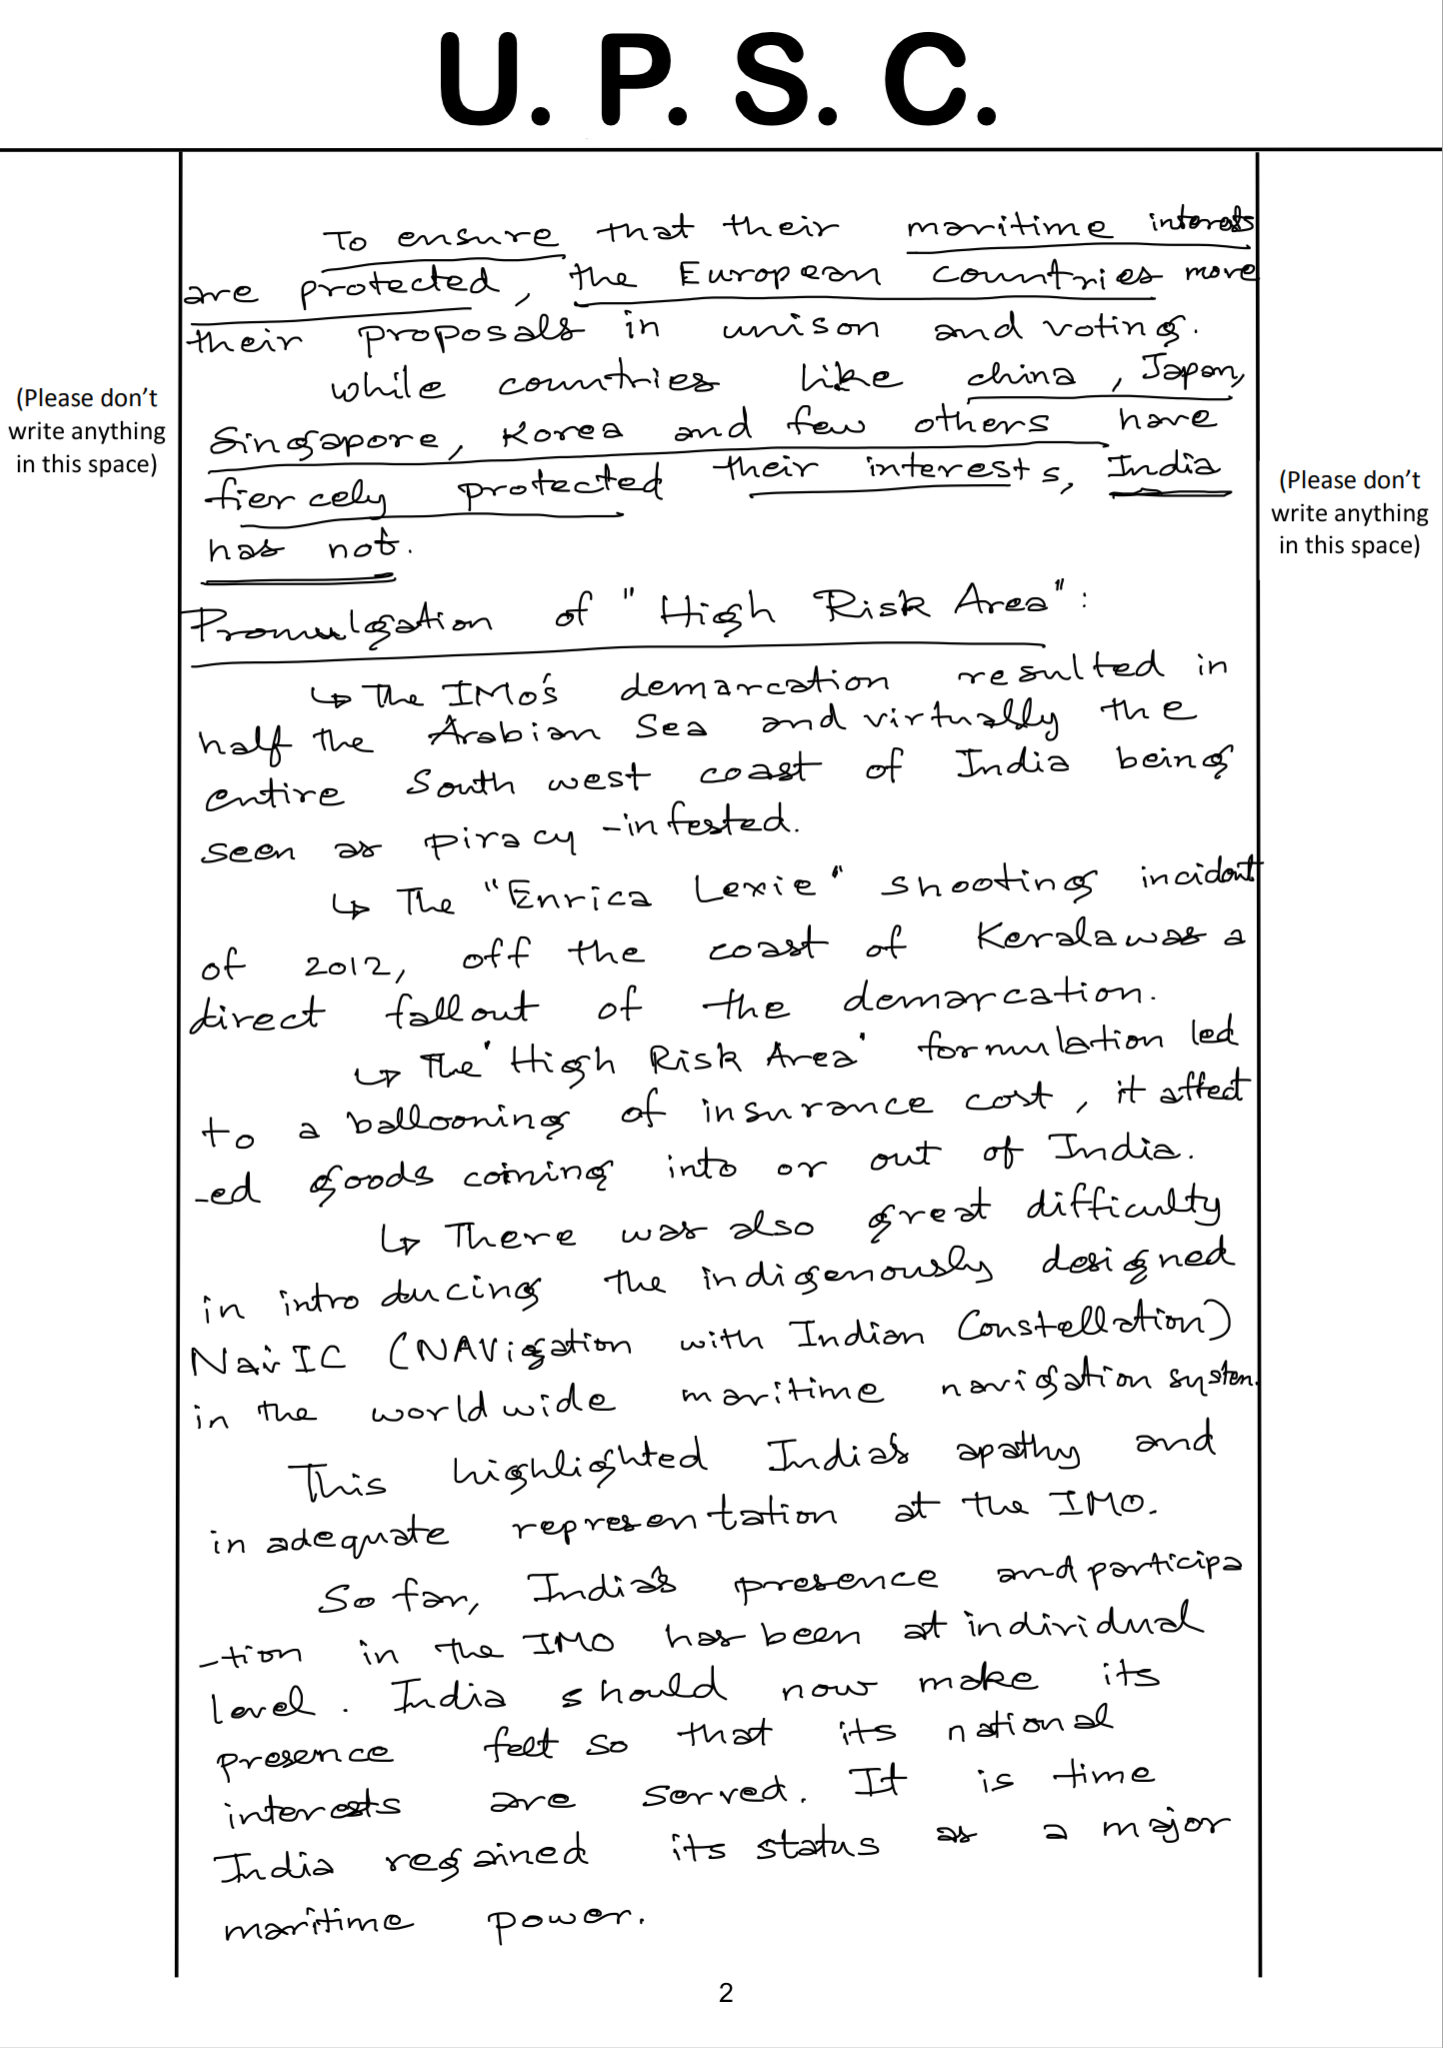 U. P. S. C.
To ensure that their maritime interests
are protected, the European countries move
their proposals in unison and voting.
while countries like china, Japan,
Singapore, Korea and few others have
fiercely protected their interests, India
has not.
(Please don't
write anything
in this space)
(Please don't
write anything
in this space)
Promulgation of "High Risk Area":
↳ The IMO's demarcation resulted in
half the Arabian Sea and virtually the
entire South west coast of India being
seen as piracy-infested.
↳ The "Enrica Lexie" shooting incident
of 2012, off the coast of Kerala was a
direct fallout of the demarcation.
↳ The 'High Risk Area' formulation led
to a ballooning of insurance cost, it affect
-ed goods coming into or out of India.
↳ There was also great difficulty
in introducing the indigenously designed
NavIC (NAVigation with Indian Constellation)
in the worldwide maritime navigation system.
This highlighted India's apathy and
inadequate representation at the IMO.
So far, India's presence and participa
-tion in the IMO has been at individual
level. India should now make its
presence felt so that its national
interests are served. It is time
India regained its status as a major
maritime power.
2